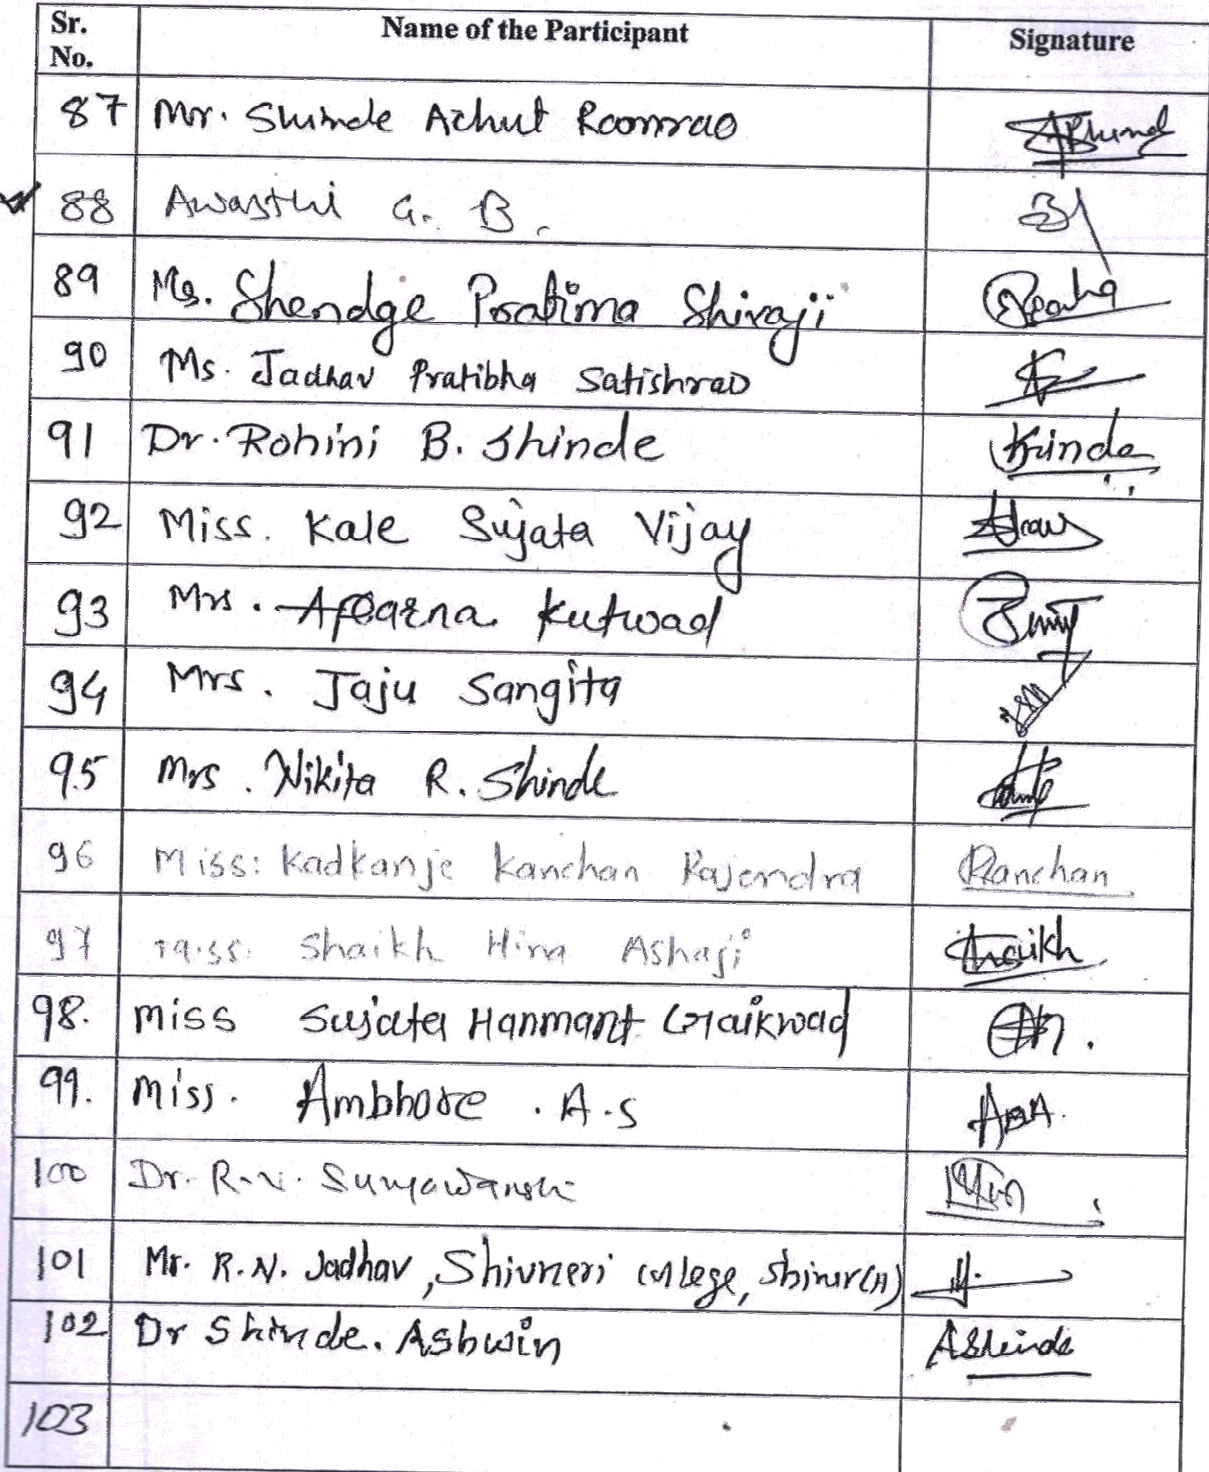 Sr. No. Name of the Participant Signature
87 Mr. Shinde Achut Roomrao
88 Awasthi G. B.
89 Ms. Shendge Pratima Shivaji
90 Ms. Jadhav Pratibha Satishrao
91 Dr. Rohini B. Shinde Shinde
92 Miss. Kale Sujata Vijay
93 Mrs. Aparna Kutwad
94 Mrs. Jaju Sangita
95 Mrs. Nikita R. Shinde
96 Miss: Kadkanje Kanchan Rajendra Kanchan
97 Miss. Shaikh Hina Ashaji Shaikh
98. Miss Sujata Hanmant Gaikwad
99. Miss. Ambhore . A.S
100 Dr. R.N. Suryawanshi
101 Mr. R.N. Jadhav, Shivneri College,
102 Dr Shinde. Ashwin AShinde
103